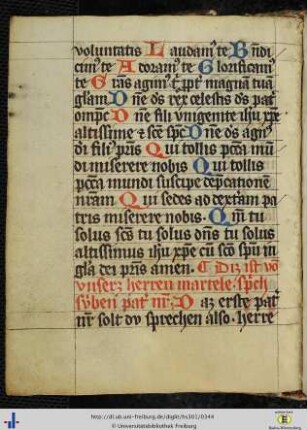 voluntatis Laudam' te Bn̄di
cim' te Adoram' te Glorificam'
te Gr̄as agim' t' ꝓpt' magnā tuā
gl̄am Dn̄e ds̄ rex celestis ds̄ pat'
omp̄c Dn̄e fili vnigenite ihu xp̄e
altissime ⁊ sc̄e sp̄c Dn̄e ds̄ agn'
di fili pr̄is Qui tollis pcc̄a mū
di miserere nobis Qui tollis
pcc̄a mundi suscipe dep̄cationē
nr̄am Qui sedes ad dext̄am pa
tris miserere nobis. Qm̄ tu
solus sc̄s tu solus dn̄s tu solus
altissimus ihu xp̄e cū sc̄o sp̄u in
gl̄a dei pr̄is amen. Diz ist vō
vnserz herren martele. sp̄ch
syben pat' nr̄. Daz erste pat'
nr̄ solt dv sprechen also. herre
http://dl.ub.uni-freiburg.de/diglit/hs302/0344
© Universitätsbibliothek Freiburg